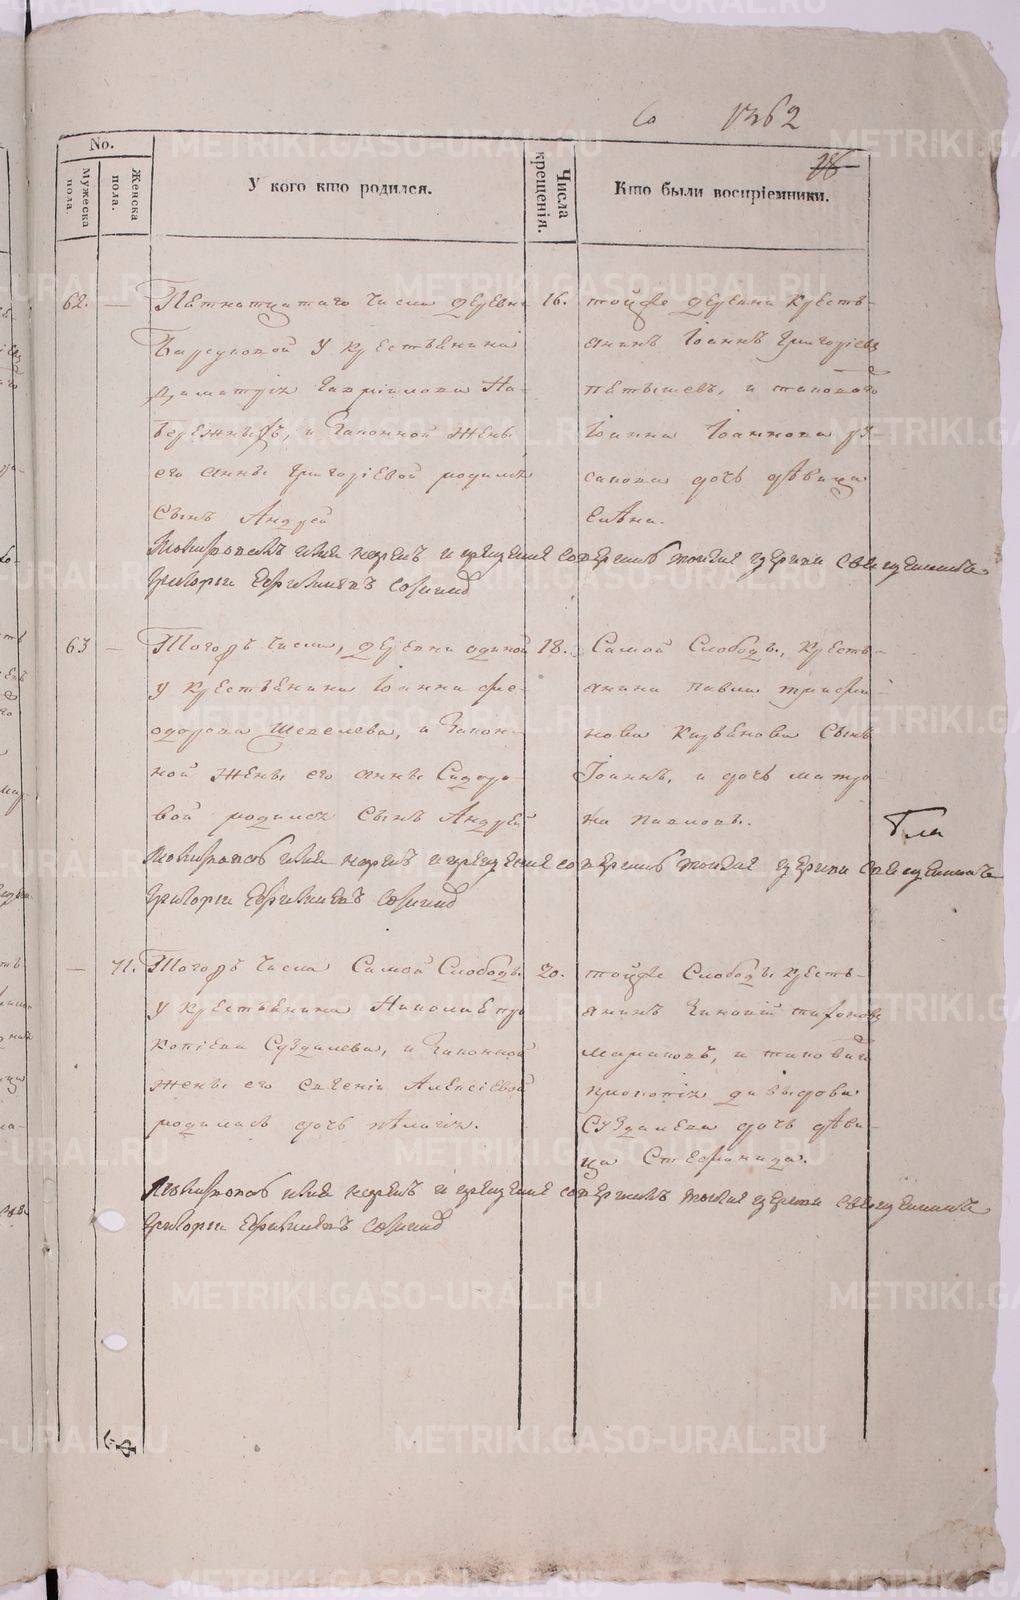 1362
No.
Мужеска пола.
Женска пола.
У кого кто родился.
Числа крещенія.
Кто были воспріемники.
62.
Пятнатцатаго числа деревни
Барсуковой у крестьянина
Димитрія Гавріилова На-
бережныхъ, и законной жены
его Анны Григоріевой родился
Сынъ Андрей
16.
тойже деревни кресть-
янинъ Іоаннъ Григоріевъ
и таковаго
Іоанна Іоаннова
дочь дѣвица
Елѣна.
имя нарекъ и крещеніе совершилъ тоя церкви священникъ
Григорій
63
Тогожъ числа, деревни одиной
у крестьянина Іоанна Фе-
одорова Шепелева, и закон-
ной жены его Анны Сидоро-
вой родился сынъ Андрей
18.
Самой Слободы, кресть-
янина Павла Трифо-
нова сынъ
Іоаннъ, и дочь Матро-
на Павловы.
имя нарекъ и крещеніе совершилъ тоя церкви священникъ
Григорій
71.
Тогожъ числа Самой Слободы
у крестьянина Николая Про-
копіева Суздалева, и законной
жены его Евгеніи Алексіевой
родилась дочь Пелагія.
20.
тойже Слободы кресть-
янинъ Тихоновъ
и таковаго
Прокопія Давыдова
Суздалева дочь дѣви-
ца Стефанида.
имя нарекъ и крещеніе совершилъ тоя церкви священникъ
Григорій
METRIKI.GASO-URAL.RU